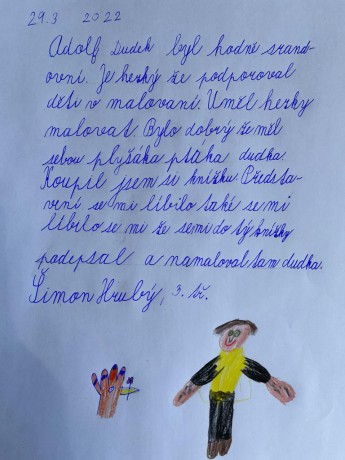 29.3 2022
Adolf Dudek byl hodně srand-
ovní. Je hezký že podporoval
děti v malovaní. Uměl hezky
malovat. Bylo dobrý že měl
sebou plyšáka ptáka dudka.
Koupil jsem si knížku Předsta-
vení se mi líbilo také se mi
líbilo se mi že semi do tý knížky
podeptal a namaloval tam dudka.
Šimon Hrubý, 3. tř.